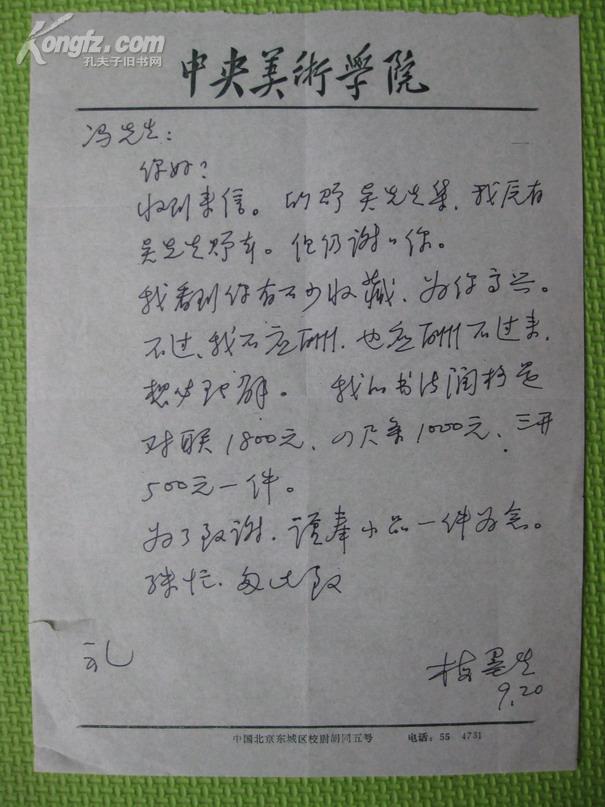 Kongfz.com
孔夫子旧书网
中央美術学院
冯先生：
你好？
收到来信。 吴先生集，我原有
吴先生 。但仍谢谢你。
我看到你有不少收藏，为你高兴。
不过，我不应酬，也应酬不过来，
想必理解。 我的书法润格是
对联1800元，四尺条1000元，三开
500元一件。
为了致谢，谨奉小品一件为念。
殊忙，匆此致
礼
梅墨生
9.20
中国北京东城区校尉胡同五号 电话：55 4731